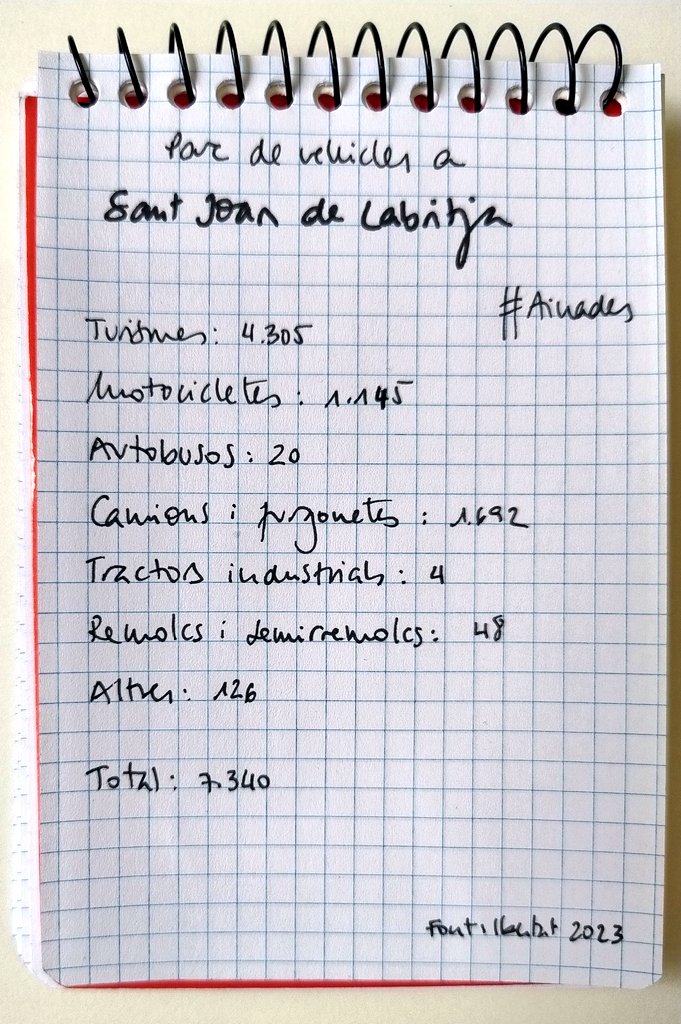 Parc de vehicles a
Sant Joan de Labritja
#Ainades
Turismes: 4.305
Motocicletes: 1.145
Autobusos: 20
Camions i furgonetes: 1.692
Tractors industrials: 4
Remolcs i semirremolcs: 48
Altres: 126
Total: 7.340
Font: Ibestat 2023